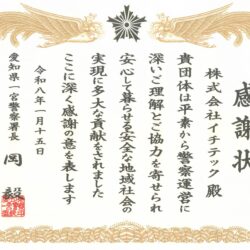 感謝状
株式会社イチテック 殿
貴団体は平素から警察運営に
深いご理解とご協力を寄せられ
安心して暮らせる安全な地域社会の
実現に多大な貢献をされました
ここに深く感謝の意を表します
令和八年一月十五日
愛知県一宮警察署長 岡